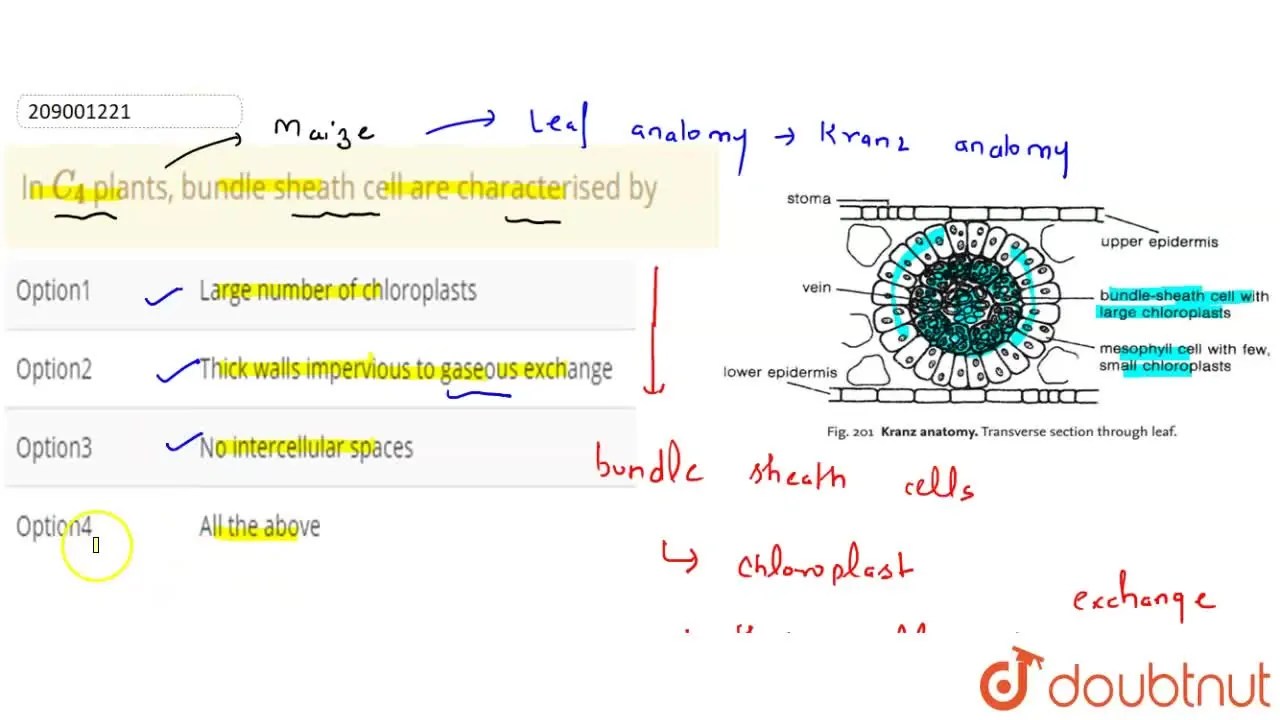 209001221
Maize → Leaf anatomy → Kranz anatomy
In C4 plants, bundle sheath cell are characterised by
Option1 Large number of chloroplasts
Option2 Thick walls impervious to gaseous exchange
Option3 No intercellular spaces
Option4 All the above
stoma
upper epidermis
vein
bundle-sheath cell with
large chloroplasts
mesophyll cell with few,
small chloroplasts
lower epidermis
Fig. 201 Kranz anatomy. Transverse section through leaf.
bundle sheath cells
↳ chloroplast
exchange
doubtnut